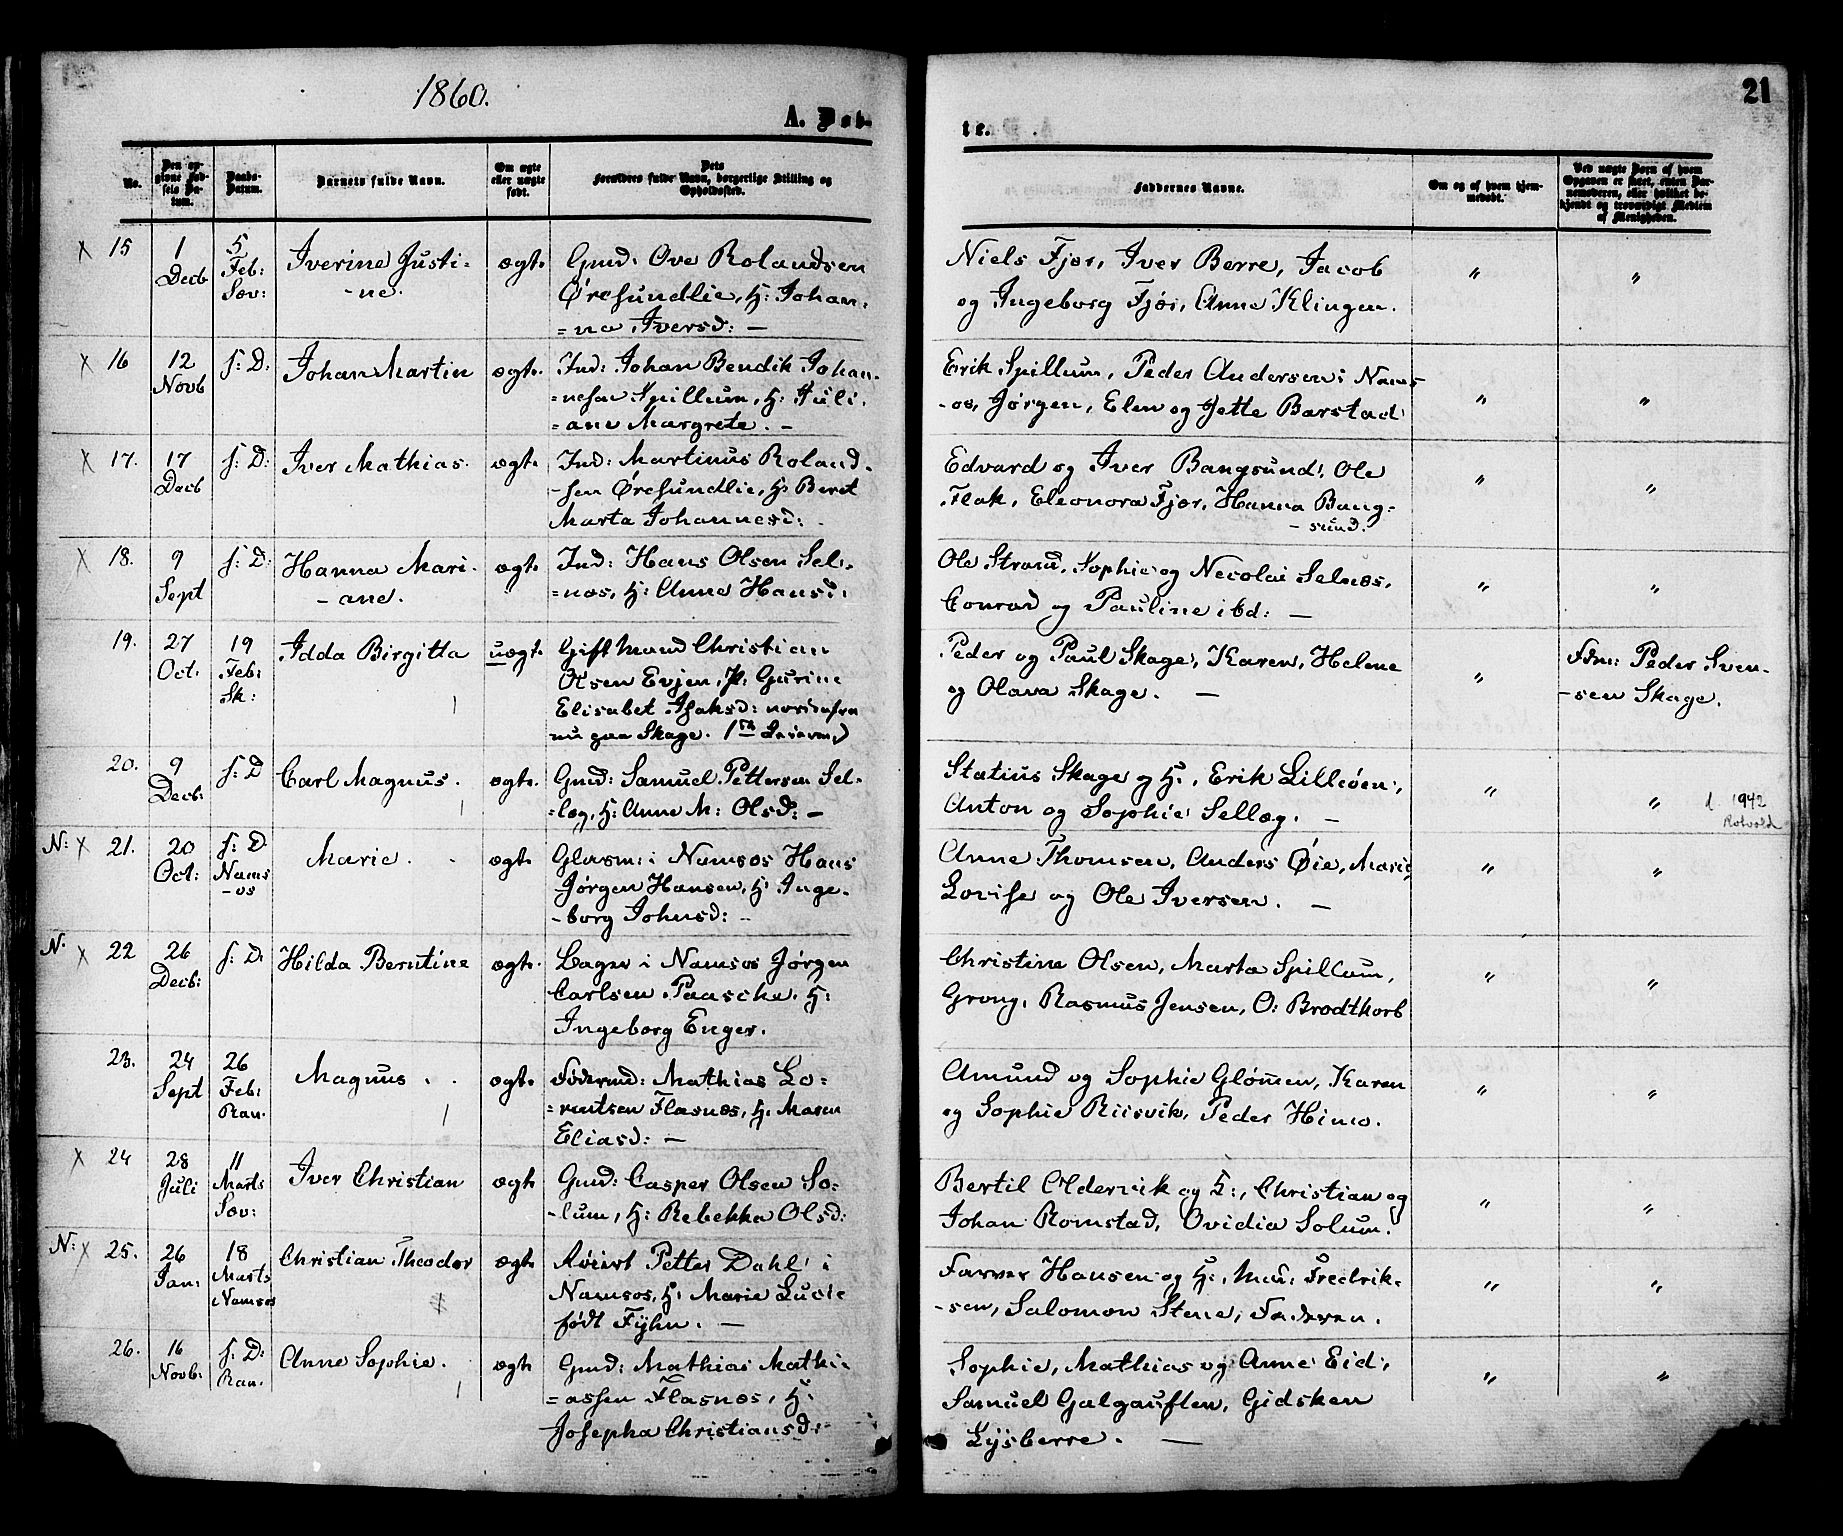 1860.
21
A. Døb-
te.
No.
Den op-
givne Fød-
sels Da-
tum.
Daabs-
Datum.
Barnets fulde Navn.
Om ægte
eller uægte
født.
Dets
Forældres fulde Navn, borgerlige Stilling og
Opholdssted.
Faddernes Navne.
Om og af hvem hjem-
medøbt.
Ved uægte Børn af hvem
Opgaven er skeet, enten Bar-
nemoderen, eller hvilket be-
kjendt og troværdigt Medlem
af Menigheden.
x 15 1 Decb 5 Feb: Sæv: Iverine Justi=
-ne. ægte Gmd: Ove Rolandsen
Øresundlie, H: Johan=
=na Iversd: —
Niels Fjær, Iver Berre, Jacob
og Ingeborg Fjær, Anne Klingen. " "
x 16 12 Novb s: D. Johan Martin ægte. Ind: Johan Bendik Johan-
=nesen Spillum, H: Juli-
=ane Margrete. —
Erik Spillum, Peder Andersen i Nams-
-os, Jørgen, Elen og Jette Barstad " "
x 17. 17 Decb s: D: Iver Mathias. ægte. Ind: Martinus Roland-
-sen Øresundlie, H: Beret
Marta Johannesd:
Edvard og Iver Bangsund, Ole
Flak, Eleonora Fjær, Hanna Bang-
-sund. " "
x 18. 9 Sept s: D: Hanna Mari-
-ane. ægte Ind: Hans Olsen Sel-
=næs, H: Anne Hansd:
Ole Strand, Sophie og Necolai Selnæs,
Conrad og Pauline ibd: — " "
19. 27 Oct: 19 Feb: Sk: Idda Birgitta uægte. Gift Mand Christian
Olsen Evjen, P: Gurine
Elisabet Isaksd: nordenfra
nu paa Skage. (1ste Leierm.)
Peder og Paul Skage, Karen, Helene
og Olava Skage. — " Fdm: Peder Sven-
-sen Skage.
20. 9 Decb: s: D Carl Magnus. ægte. Gmd: Samuel Pettersen Sel-
=læg, H: Anne M: Olsd: —
Statius Skage og H:, Erik Lilleøen,
Anton og Sophie Sellæg. — " " d 1942
N: x 21. 20 Oct: s: D Nams
-os Marie. ægte Glasm: i Namsos Hans
Jørgen Hansen, H: Inge-
-borg Johnsd: —
Anne Thomsen, Anders Øie, Marie
Lovise og Ole Iversen. — " "
N. x 22 26 Decb: s: D. Hilda Berntine ægte. Bager i Namsos Jørgen
Carlsen Paasche, H:
Ingeborg Enger.
Christine Olsen, Marta Spillum,
Grong, Rasmus Jensen, O: Brodtkorb " "
23. 24 Sept 26 Feb: Ran. Magnus. ægte. Føderaad: Mathias Lo=
=rentsen Flasnæs, H: Maren
Eliasd: —
Amund og Sophie Glømmen, Karen
og Sophie Riisvik, Peder Himo. " "
x 24 28 Juli 11 Marts Sæv: Iver Christian ægte Gmd: Casper Olsen So=
-lum, H: Rebekka Olsd:
Bertil Oldervik og H:, Christian og
Johan Romstad, Ovidia Solum. " "
N: x 25. 26 Jan: 18 Marts Namsos Christian Theodor ægte Petter Dahl i
Namsos, H: Marie Lucie
født Fyhn. —
Farver Hansen og H:, Mad: Fredrik-
-sen, Salomon Stene, Faderen. " "
26. 16 Novb: s: D: Ran. Anne Sophie. ægte Gmd: Mathias Mathi-
=assen Flasnæs, H:
Josepha Christiansd:
Sophie, Mathias og Anne Eid,
Samuel Galgauften, Gidsken
Lysberre. — " "